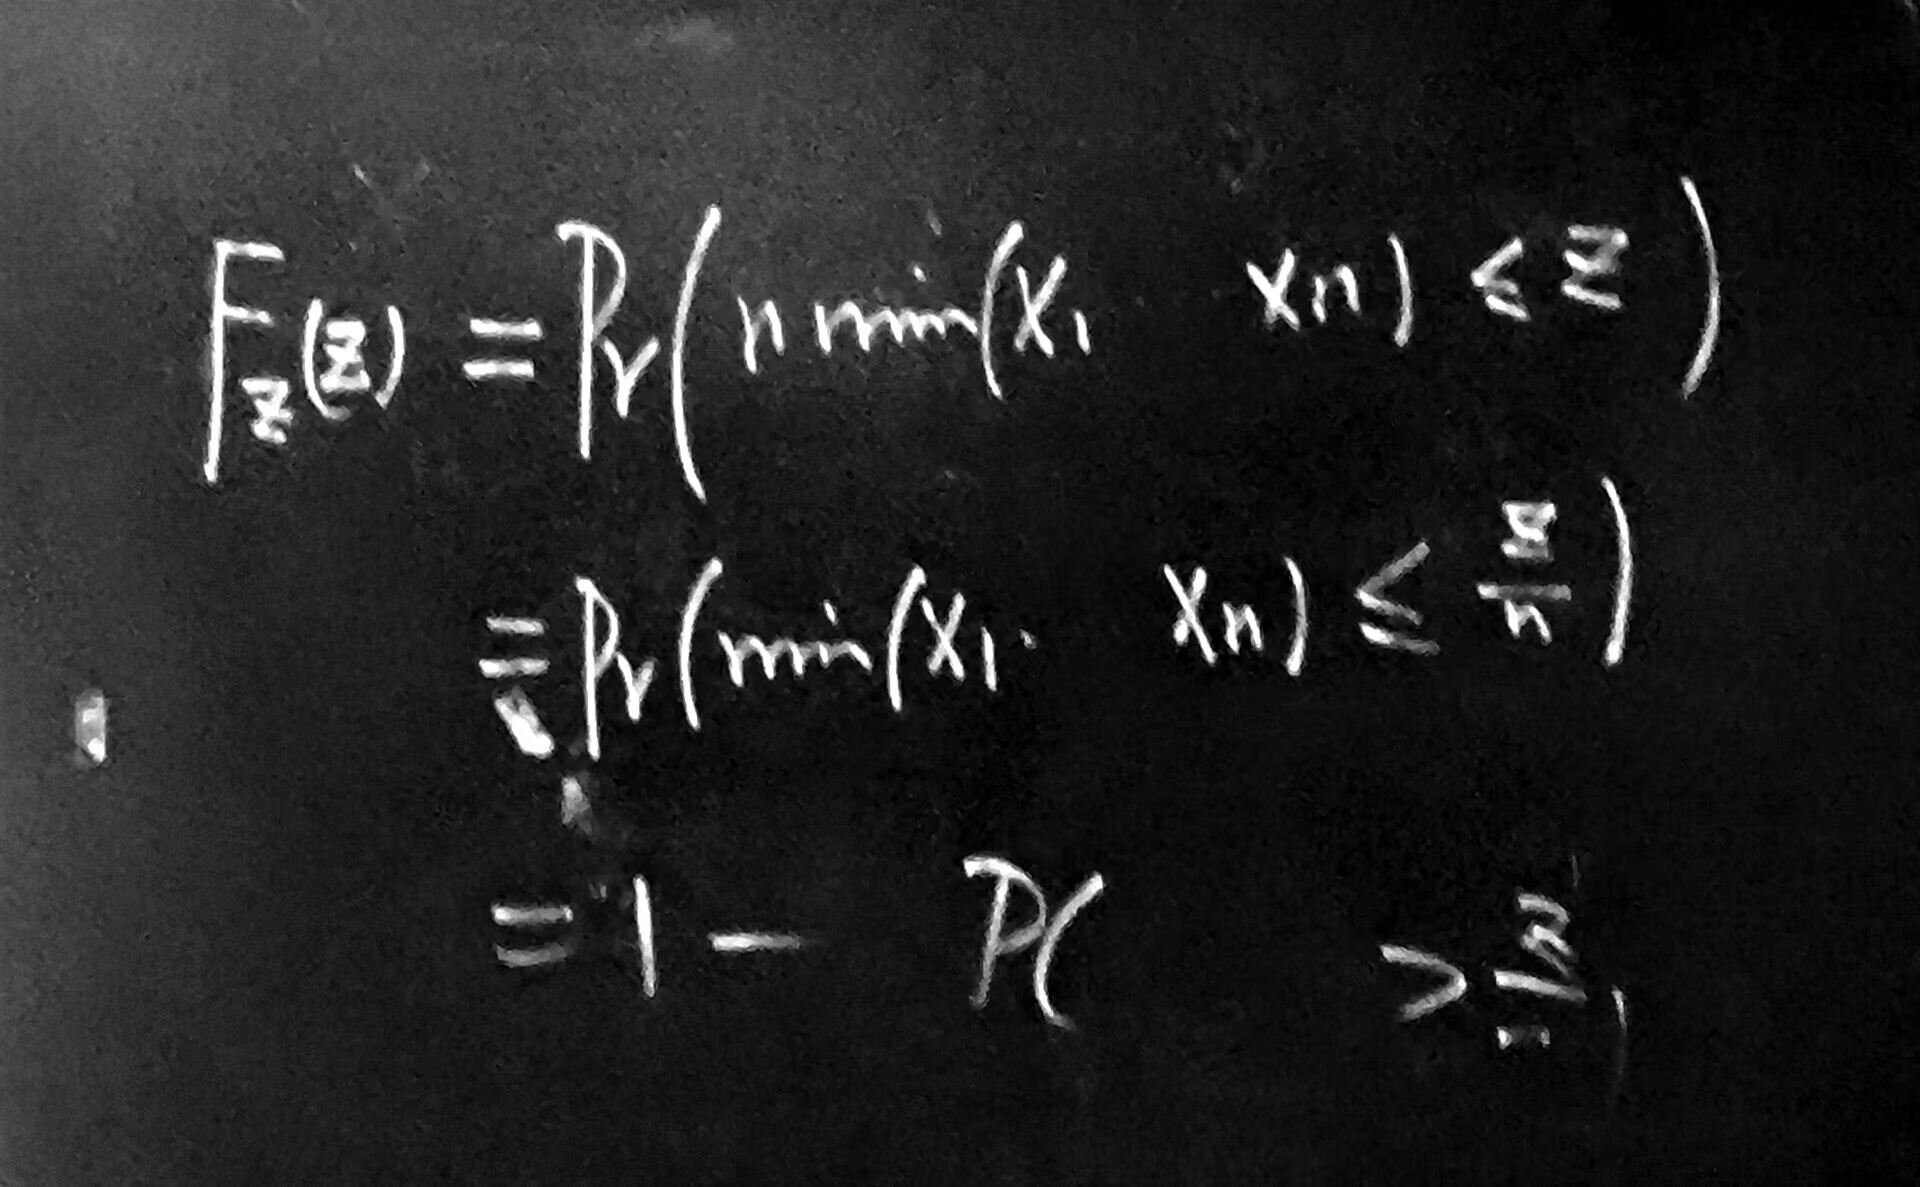 F_z(z) = Pr(n min(X₁ Xn) ≤ z)
= Pr(min(X₁· Xn) ≤ z/n)
= 1 − P( > z/n)